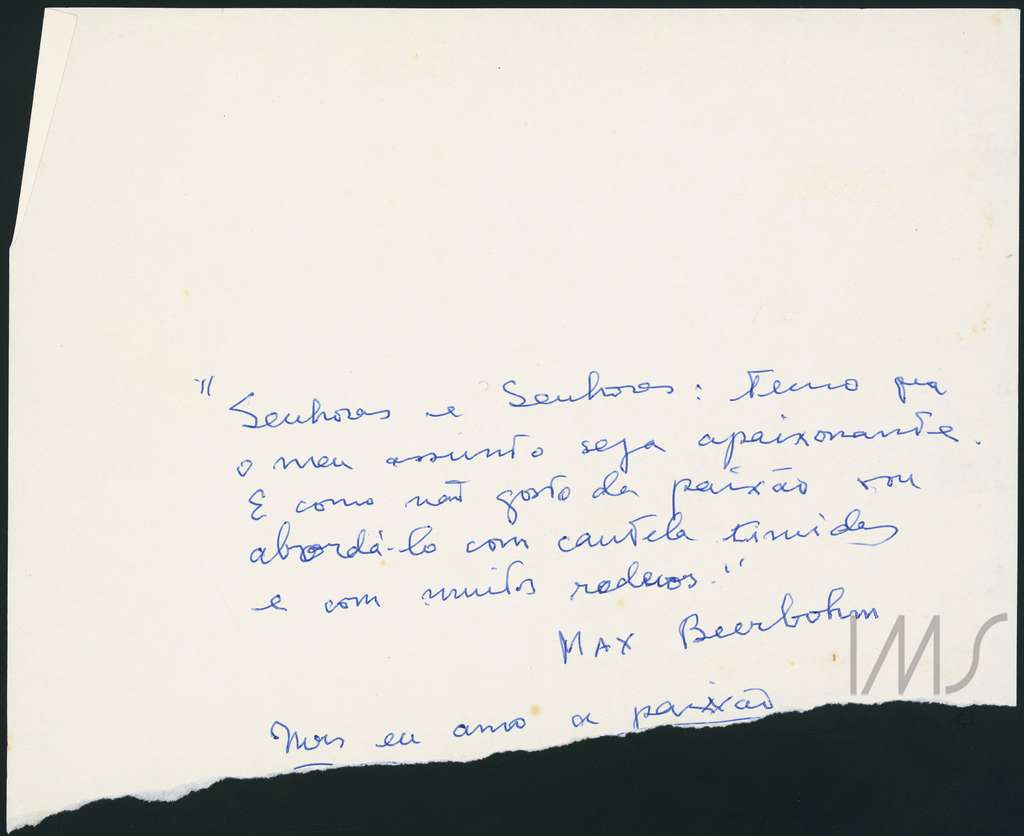 "Senhoras e Senhores: temo que
o meu assunto seja apaixonante.
E como não gosto da paixão vou
abordá-lo com cautela timidez
e com muitos rodeios."
Max Beerbohm
IMS
Mas eu amo a paixão